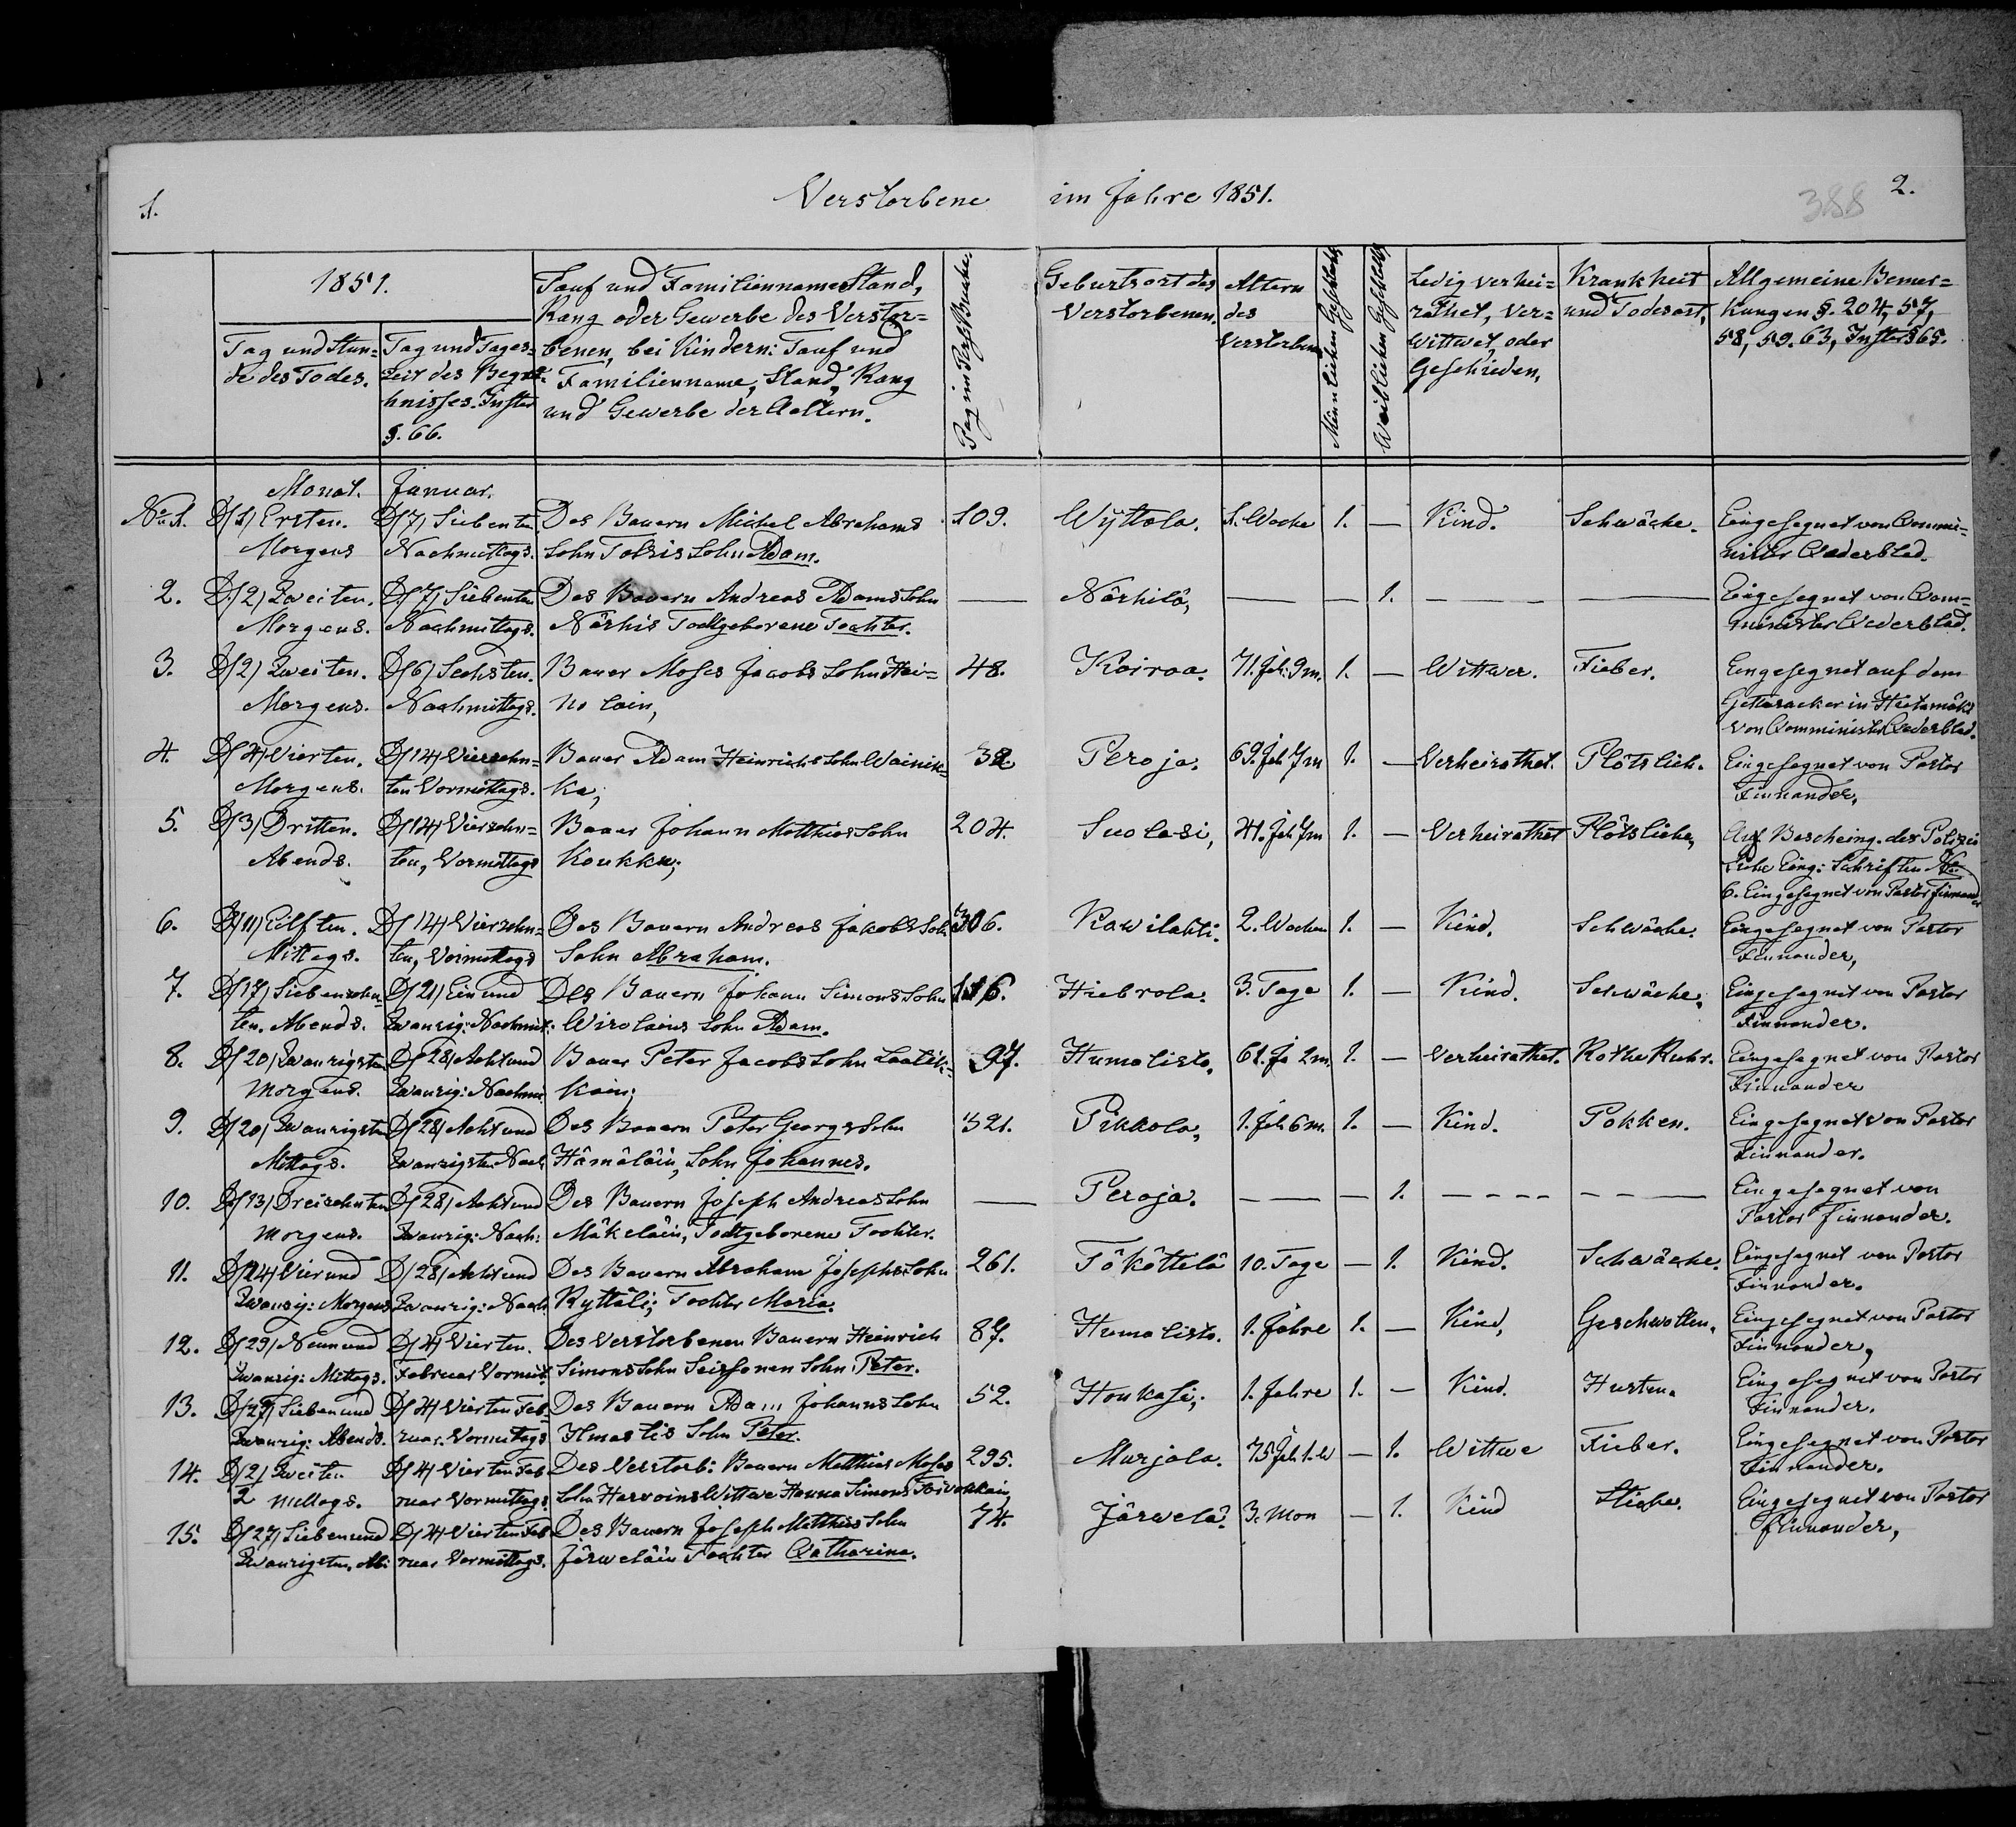 1.
Verstorbene im Jahre 1851.
388
2.
1851.
Tag und Stun=
de des Todes.
Tag und Tages=
zeit des Begräb-
hnisses. Instr
§. 66.
Tauf und Familienname Stand,
Rang oder Gewerbe des Verstor=
benen, bei Kindern: Tauf und
Familienname, Stand, Rang
und Gewerbe der Aeltern.
Pag im Pers. Buche.
Geburtsort des
Verstorbenen.
Altern
des
Verstorben
Männlichen Geschlechts
Weiblichen Geschlechts
Ledig verhei=
rathet, Ver=
wittwet oder
Geschieden,
Krankheit
und Todesart,
Allgemeine Bemer=
kungen §. 204, 57,
58, 59. 63, Instr §65.
Monat. Januar.
No 1. D/1/ Ersten. D/7/ Siebenten Des Bauern Michel Abrahams 109. Wÿttola. 1. Woche 1. — Kind. Schwäche. Eingesegnet von Commi=
Morgens Nachmittags. Sohn Tolsis Sohn Adam. nister Cederblad.
2. D/2/ Zweiten. D/7/ Siebenten Des Bauern Andreas Adams Sohn — Närhilä, — — 1. — — Eingesegnet von Com=
Morgens. Nachmittags. Närhis Todtgeborene Tochter. minister Cederblad.
3. D/2/ Zweiten. D/6/ Sechsten. Bauer Moses Jacobs Sohn Hei= 48. Koiroa. 71. Jah: 9 m. 1. — Wittwer. Fieber. Eingesegnet auf dem
Morgens. Nachmittags. nolain, Gottesacker in Hietamäki
von Comminister Cederblad.
4. D/4/ Vierten. D/14/ Vierzehn= Bauer Adam Heinrichs Sohn Wainik= 32 Peroja. 69. Jah 7 m 1. — Verheirathet. Plötslich. Eingesegnet von Pastor
Morgens. ten Vormittags. ka; Finnander,
5. D/3/ Dritten. D/14/ Vierzehn= Bauer Johann Matthias Sohn 204. Suolasi, 41. Jah 7 m 1. — Verheirathet Plötsliche, Auf Bescheing. der Polizei
Abends. ten, Vormittags Koukku; Siehe Eing: Schriften No
6. Eingesegnet von Pastor Finnander
6. D/11/ Eilften. D/14/ Vierzehn= Des Bauern Andreas Jakobs Sohn 306. Kawilahti. 2. Wochen 1. — Kind. Schwäche. Eingesegnet von Pastor
Mittags. ten, Vormittags Sohn Abraham. Finnander,
7. D/17/ Siebenzehn= D/21/ Ein und Des Bauern Johann Simons Sohn 116. Hiebrola. 3. Tage 1. — Kind. Schwäche, Eingesegnet von Pastor
ten. Abends. Zwanzig: Nachmit: Wirolains Sohn Adam. Finnander.
8. D/20/ Zwanzigsten D/28/ Acht und Bauer Peter Jacobs Sohn Laatik= 97. Humalisto, 61. Ja 2 m. 1. — Verheirathet. Rothe Ruhr. Eingesegnet von Pastor
Morgens. Zwanzig: Nachm: kain; Finnander
9. D/20/ Zwanzigsten D/28/ Acht und Des Bauern Peter Georgs Sohn 321. Pikkola, 1. Jah 6 m. 1. — Kind. Pokken. Eingesegnet von Pastor
Mittags. Zwanzigsten Nach Hämäläin, Sohn Johannes. Finnander.
10. D/13/ Dreizehnten D/28/ Acht und Des Bauern Joseph Andreas Sohn — Peroja. — — — 1. — — Eingesegnet von
Morgens. Zwanzig: Nach: Mäkeläin, Todtgeborene Tochter. Pastor Finnander.
11. D/24/ Vier und D/28/ Acht und Des Bauern Abraham Josephs Sohn 261. Tököttelä 10. Tage — 1. Kind. Schwäche. Eingesegnet von Pastor
Zwanzig: Morgens Zwanzig: Nach. Ryttäli; Tochter Maria. Finnander.
12. D/29/ Neun und D/4/ Vierten. Des Verstorbenen Bauern Heinrich 87. Humalisto. 1. Jahre 1. — Kind, Geschwollen, Eingesegnet von Pastor
Zwanzig: Mittags. Februar Vormit. Simons Sohn Seissonen Sohn Peter. Finnander,
13. D/27/ Sieben und D/4/ Vierten Feb- Des Bauern Adam Johanns Sohn 52. Honkasi, 1. Jahre 1. — Kind. Husten. Eingesegnet von Pastor
Zwanzig: Abends. ruar. Vormittags Ilmastis Sohn Peter. Finnander.
14. D/2/ Zweiten D/4/ Vierten Feb Des Verstorb: Bauern Matthias Moses 295. Murjala. 75 Jah. 1. W — 1. Wittwe Fieber. Eingesegnet von Pastor
2 Mittags. ruar Vormittags Sohn Harvoins Wittwe Hanna Simons Toivokkain Finnander.
15. D/27/ Sieben und D/4/ Vierten Feb Des Bauern Joseph Matthias Sohn 74. Järwelä. 3. Mon — 1. Kind Stiche. Eingesegnet von Pastor
Zwanzigsten, Ab: ruar Vormittags. Järweläin Tochter Catharina. Finnander,